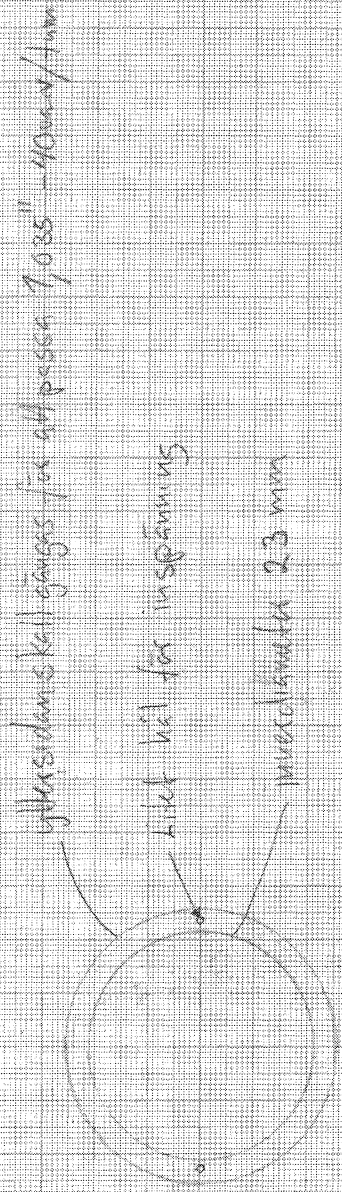 Yttersidan skall gängas för att passa 1,035" - 40 varv/tum
Litet hål för inspänning
Innerdiameter 23 mm